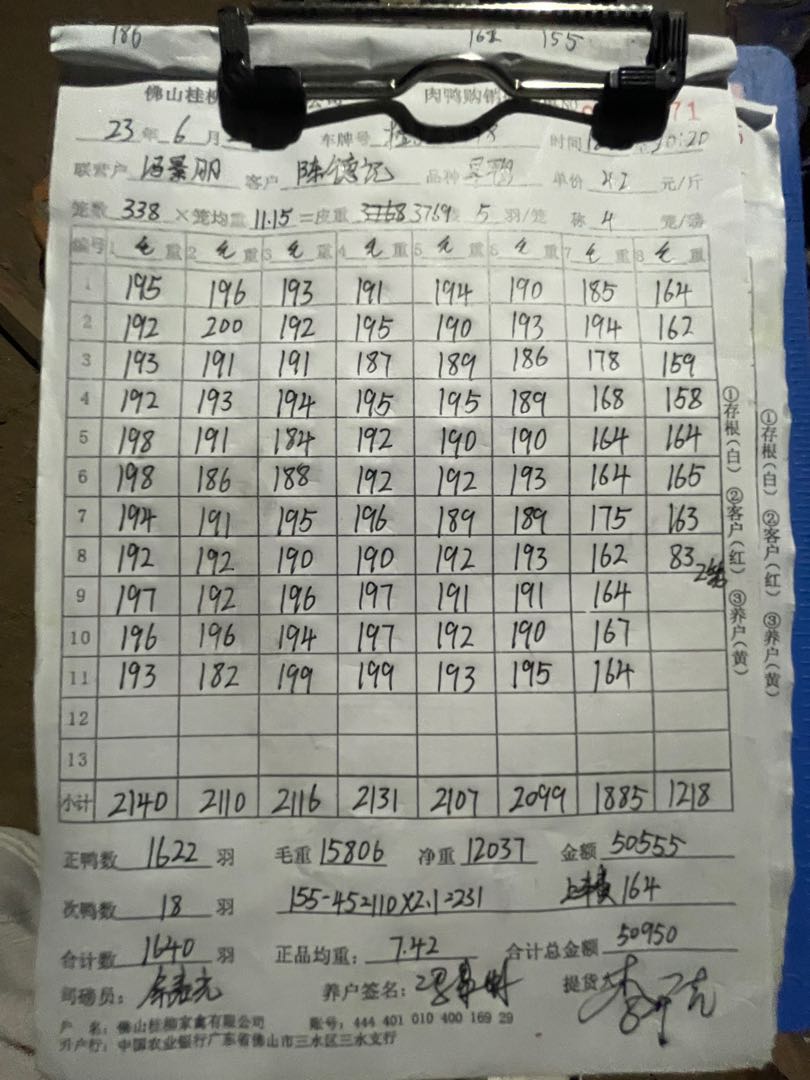 186 164 155
佛山桂柳 公司 肉鸭购销 71
23年6月 车牌号 时间 10:20
联营户 冯景明 客户 陈德记 品种 单价 4.2 元/斤
笼数 338 ×笼均重 11.15 =皮重 3768 3769 5 羽/笼 称 4 笼/磅
编号 1 毛重 2 毛重 3 毛重 4 毛重 5 毛重 6 毛重 7 毛重 8 毛重
1 195 196 193 191 194 190 185 164
2 192 200 192 195 190 193 194 162
3 193 191 191 187 189 186 178 159
4 192 193 194 195 195 189 168 158
5 198 191 184 192 190 190 164 164
6 198 186 188 192 192 193 164 165
7 194 191 195 196 189 189 175 163
8 192 192 190 190 192 193 162 83 2笼
9 197 192 196 197 191 191 164
10 196 196 194 197 192 190 167
11 193 182 199 199 193 195 164
12
13
小计 2140 2110 2116 2131 2107 2099 1885 1218
①存根(白) ②客户(红) ③养户(黄)
①存根(白) ②客户(红) ③养户(黄)
正鸭数 1622 羽 毛重 15806 净重 12037 金额 50555
次鸭数 18 羽 155-45=110×2.1=231 164
合计数 1640 羽 正品均重: 7.42 合计总金额 50950
司磅员: 养户签名: 提货
户 名: 佛山桂柳家禽有限公司 账号: 444 401 010 400 169 29
开户行: 中国农业银行广东省佛山市三水区三水支行